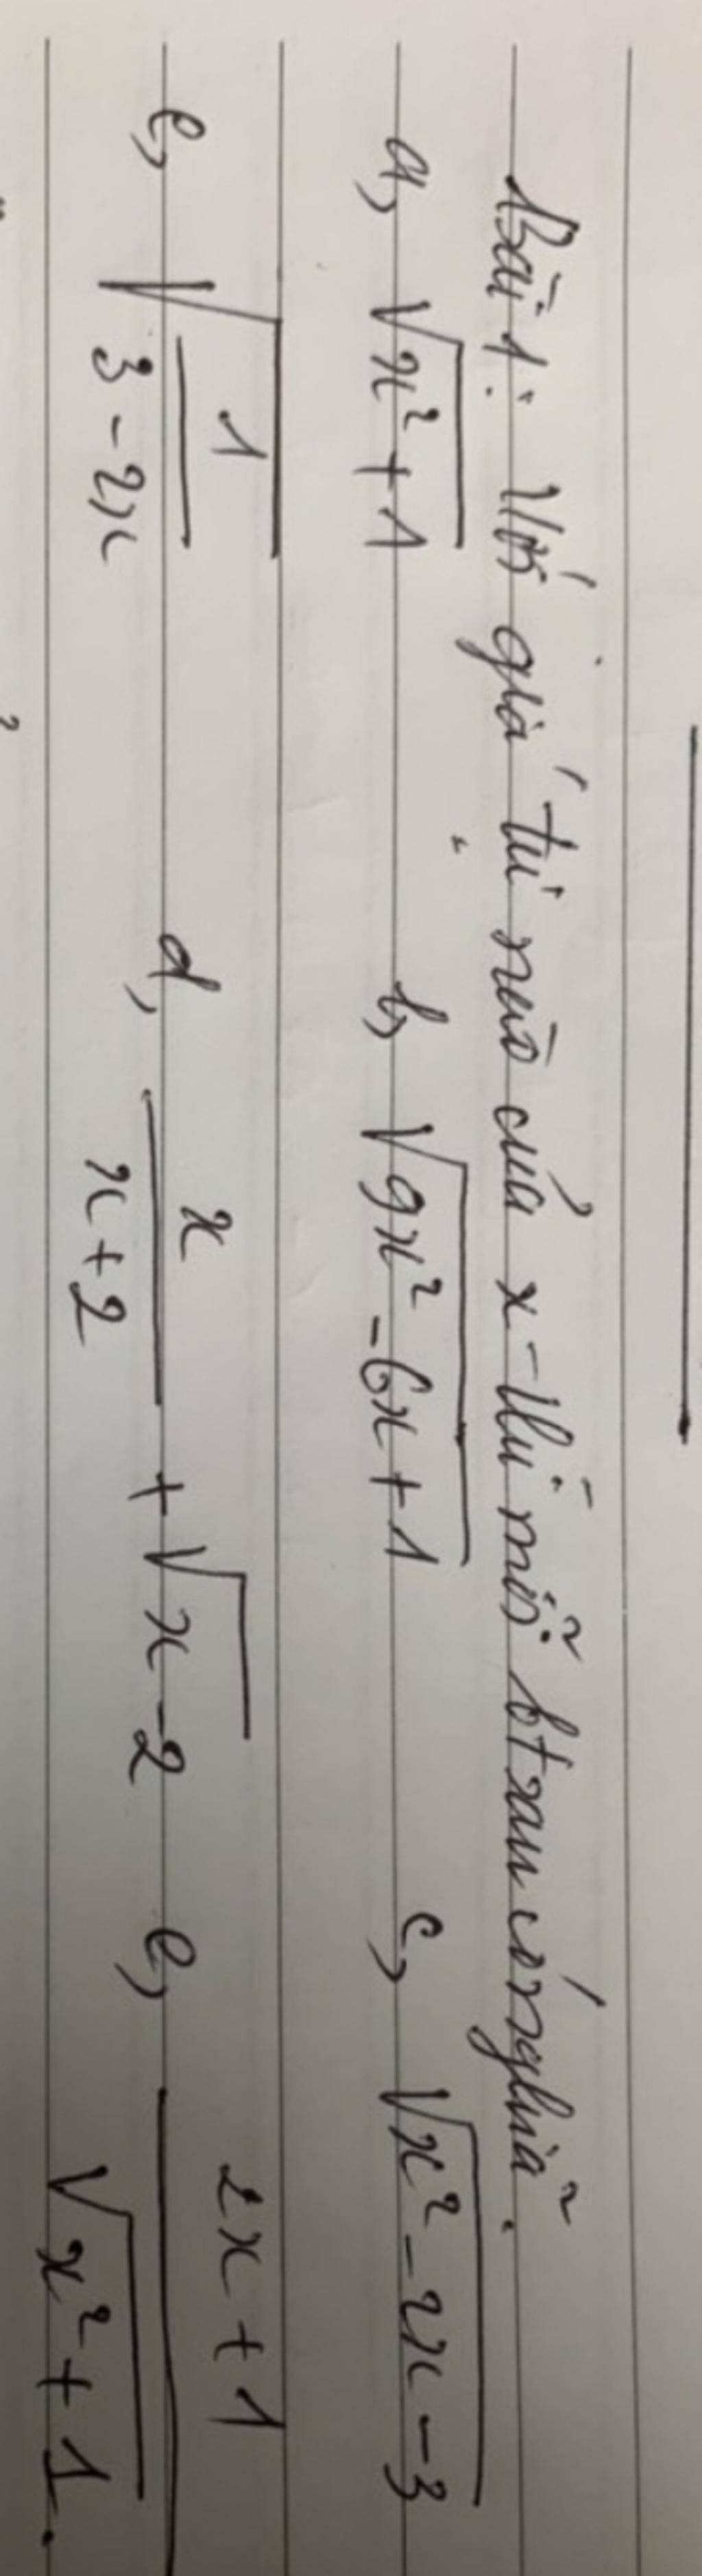 Bài 1: Với giá trị nào của x thì mỗi bt sau có nghĩa.
a, √(x² + 1) b, √(9x² - 6x + 1) c, √(x² - 2x - 3)
e, √(1/(3 - 2x)) d, x/(x + 2) + √(x - 2) e, (2x + 1)/√(x² + 1).